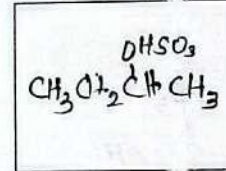 OHSO₃
CH₃CH₂CHCH₃